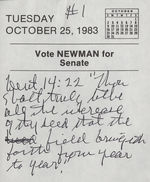 #1
TUESDAY
OCTOBER 25, 1983
OCTOBER
Vote NEWMAN for
Senate
Deut. 14:22 "Thou
shalt truly tithe
all the increase
of thy seed that the
field bringeth
forth year
to year."